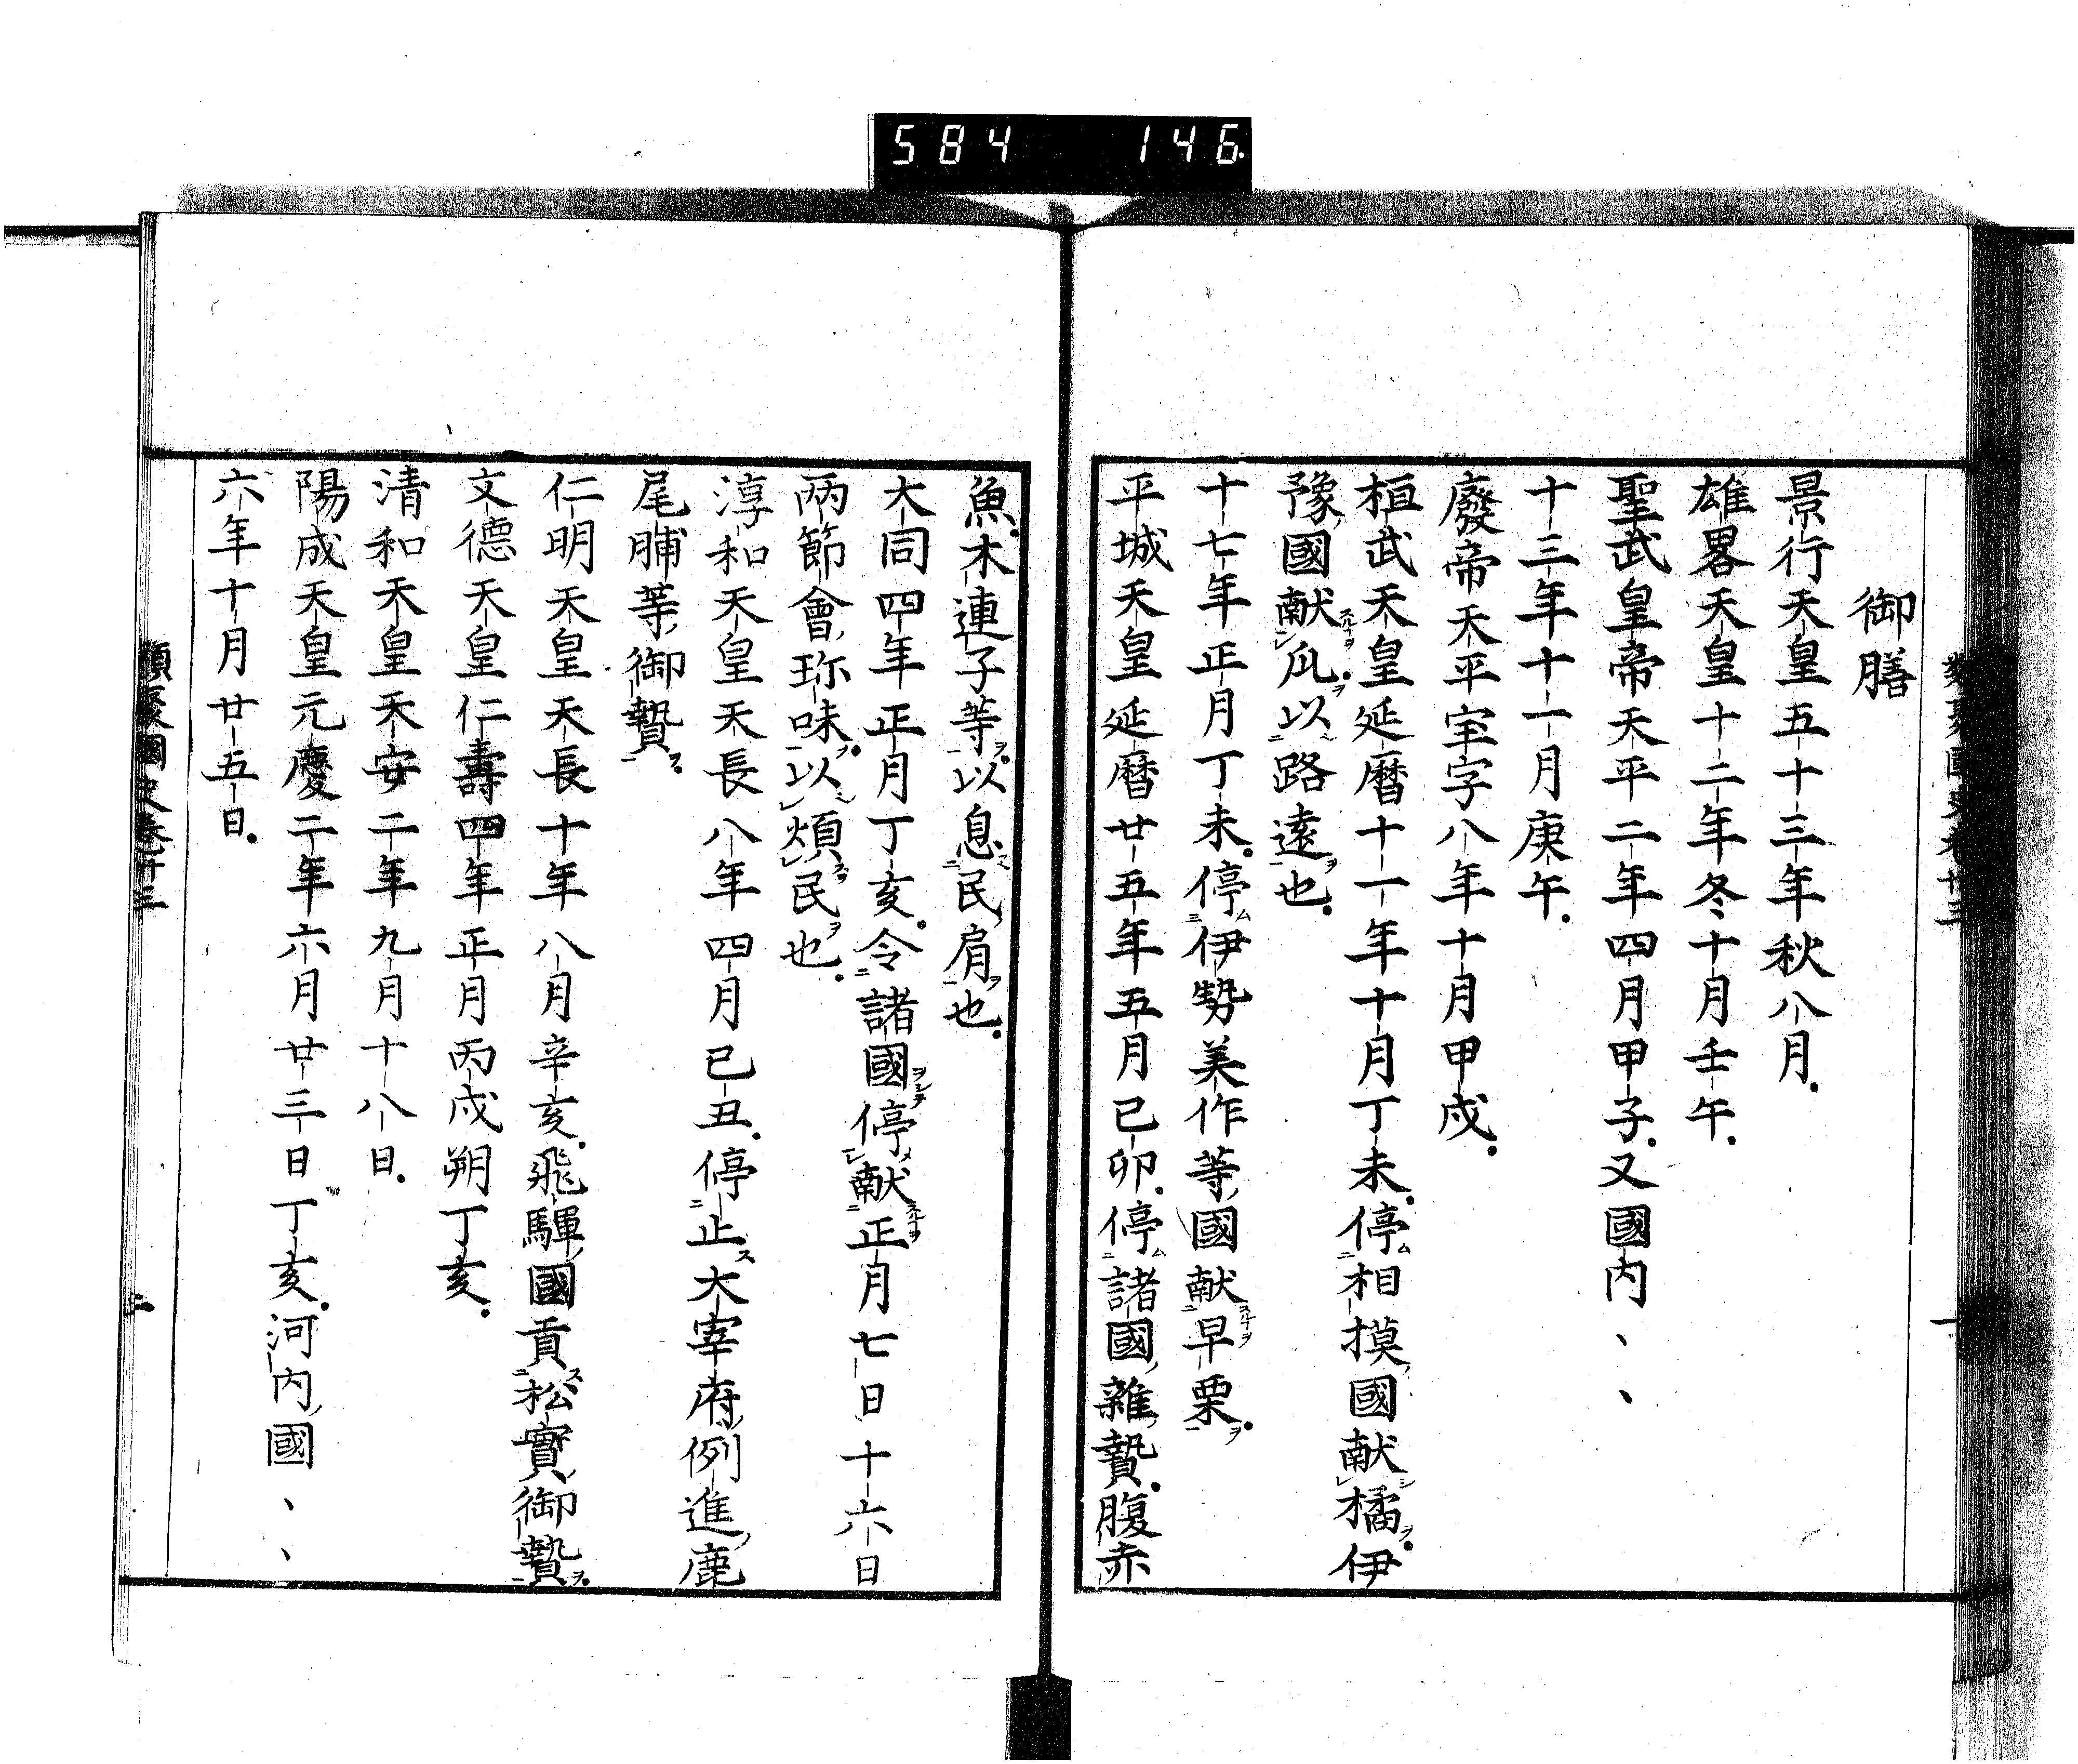 584 146
御膳
景行天皇五十三年秋八月.
雄畧天皇十二年冬十月壬午.
聖武皇帝天平二年四月甲子.又國内、、
十三年十一月庚午.
廢帝天平宝字八年十月甲戌.
桓武天皇延暦十一年十月丁未.停相摸國献橘.伊
豫國献瓜.以路遠也.
十七年正月丁未.停伊勢美作等國献早栗.
平城天皇延暦廿五年五月己卯.停諸國雜贄.腹赤
魚.木連子等.以息民肩也.
大同四年正月丁亥.令諸國停献正月七日十六日
兩節會珎味.以煩民也.
淳和天皇天長八年四月己丑.停止大宰府例進鹿
尾脯等御贄.
仁明天皇天長十年八月辛亥.飛驒國貢松實御贄.
文德天皇仁壽四年正月丙戌朔丁亥.
清和天皇天安二年九月十八日.
陽成天皇元慶二年六月廿三日丁亥.河内國、、
六年十月廿五日.
類聚國史卷廿三
二